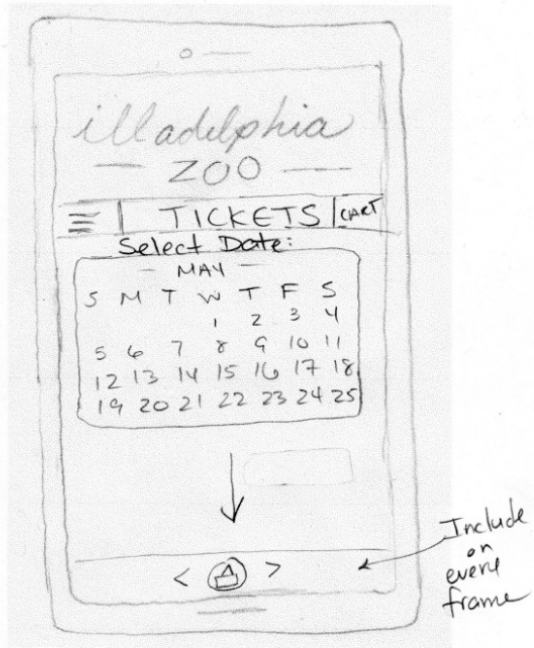 illadelphia
ZOO
TICKETS CART
Select Date:
MAY
S M T W T F S
1 2 3 4
5 6 7 8 9 10 11
12 13 14 15 16 17 18
19 20 21 22 23 24 25
< >
Include
on
every
frame